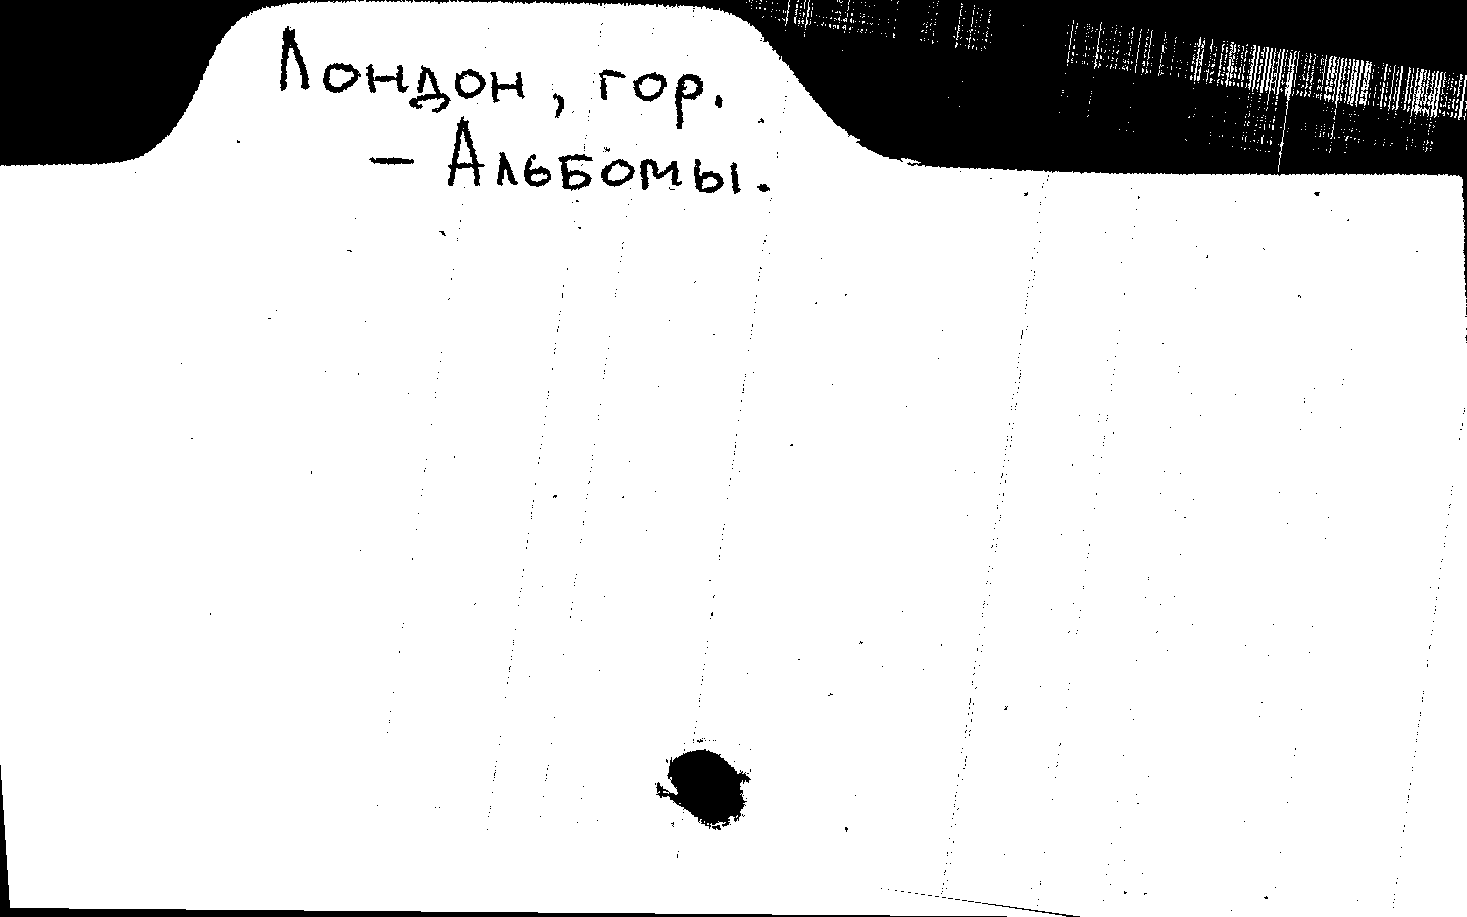 Лондон, гор.
— Альбомы.